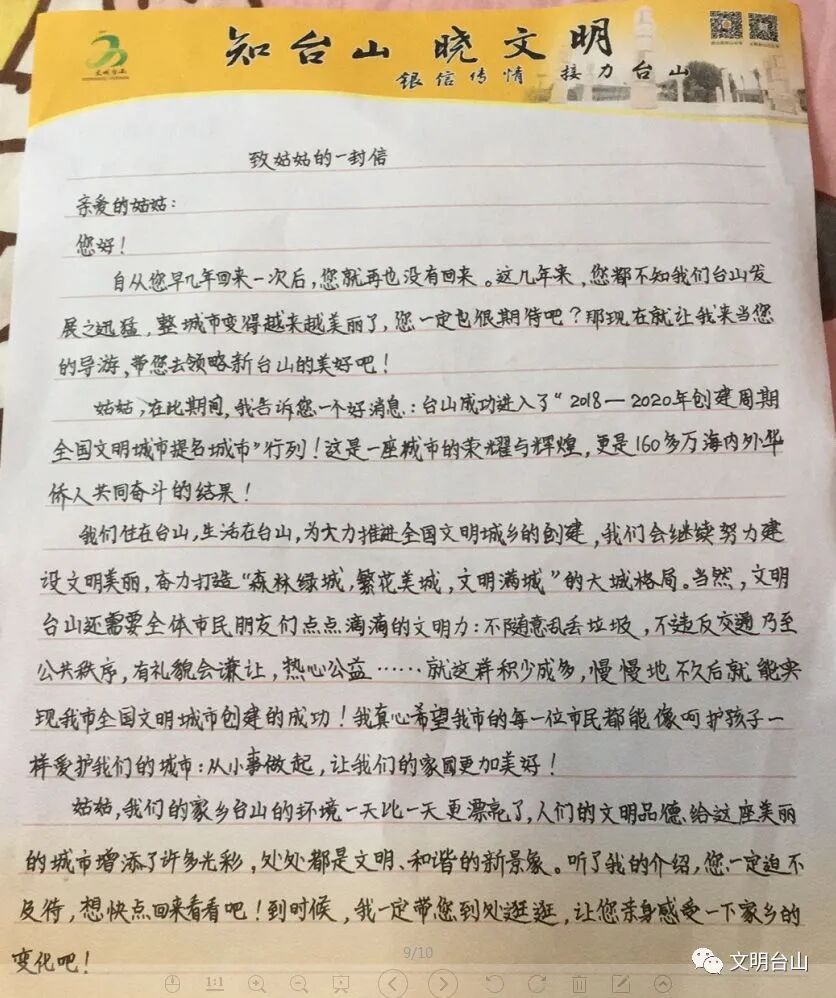 知台山 晓文明
银信传情 接力台山
文明台山
致姑姑的一封信
亲爱的姑姑：
您好！
自从您早几年回来一次后，您就再也没有回来。这几年来，您都不知我们台山发
展之迅猛，整城市变得越来越美丽了，您一定也很期待吧？那现在就让我来当您
的导游，带您去领略新台山的美好吧！
姑姑，在此期间，我告诉您一个好消息：台山成功进入了“2018—2020年创建周期
全国文明城市提名城市”行列！这是一座城市的荣耀与辉煌，更是160多万海内外华
侨人共同奋斗的结果！
我们住在台山，生活在台山，为大力推进全国文明城乡的创建，我们会继续努力建
设文明美丽，奋力打造“森林绿城，繁花美城，文明满城”的大城格局。当然，文明
台山还需要全体市民朋友们点点滴滴的文明力：不随意乱丢垃圾，不违反交通乃至
公共秩序，有礼貌会谦让，热心公益……就这样积少成多，慢慢地不久后就能实
现我市全国文明城市创建的成功！我真心希望我市的每一位市民都能像呵护孩子一
样爱护我们的城市：从小事做起，让我们的家园更加美好！
姑姑，我们的家乡台山的环境一天比一天更漂亮了，人们的文明品德、给这座美丽
的城市增添了许多光彩，处处都是文明、和谐的新景象。听了我的介绍，您一定迫不
及待，想快点回来看看吧！到时候，我一定带您到处逛逛，让您亲身感受一下家乡的
变化吧！
9/10
1:1
文明台山